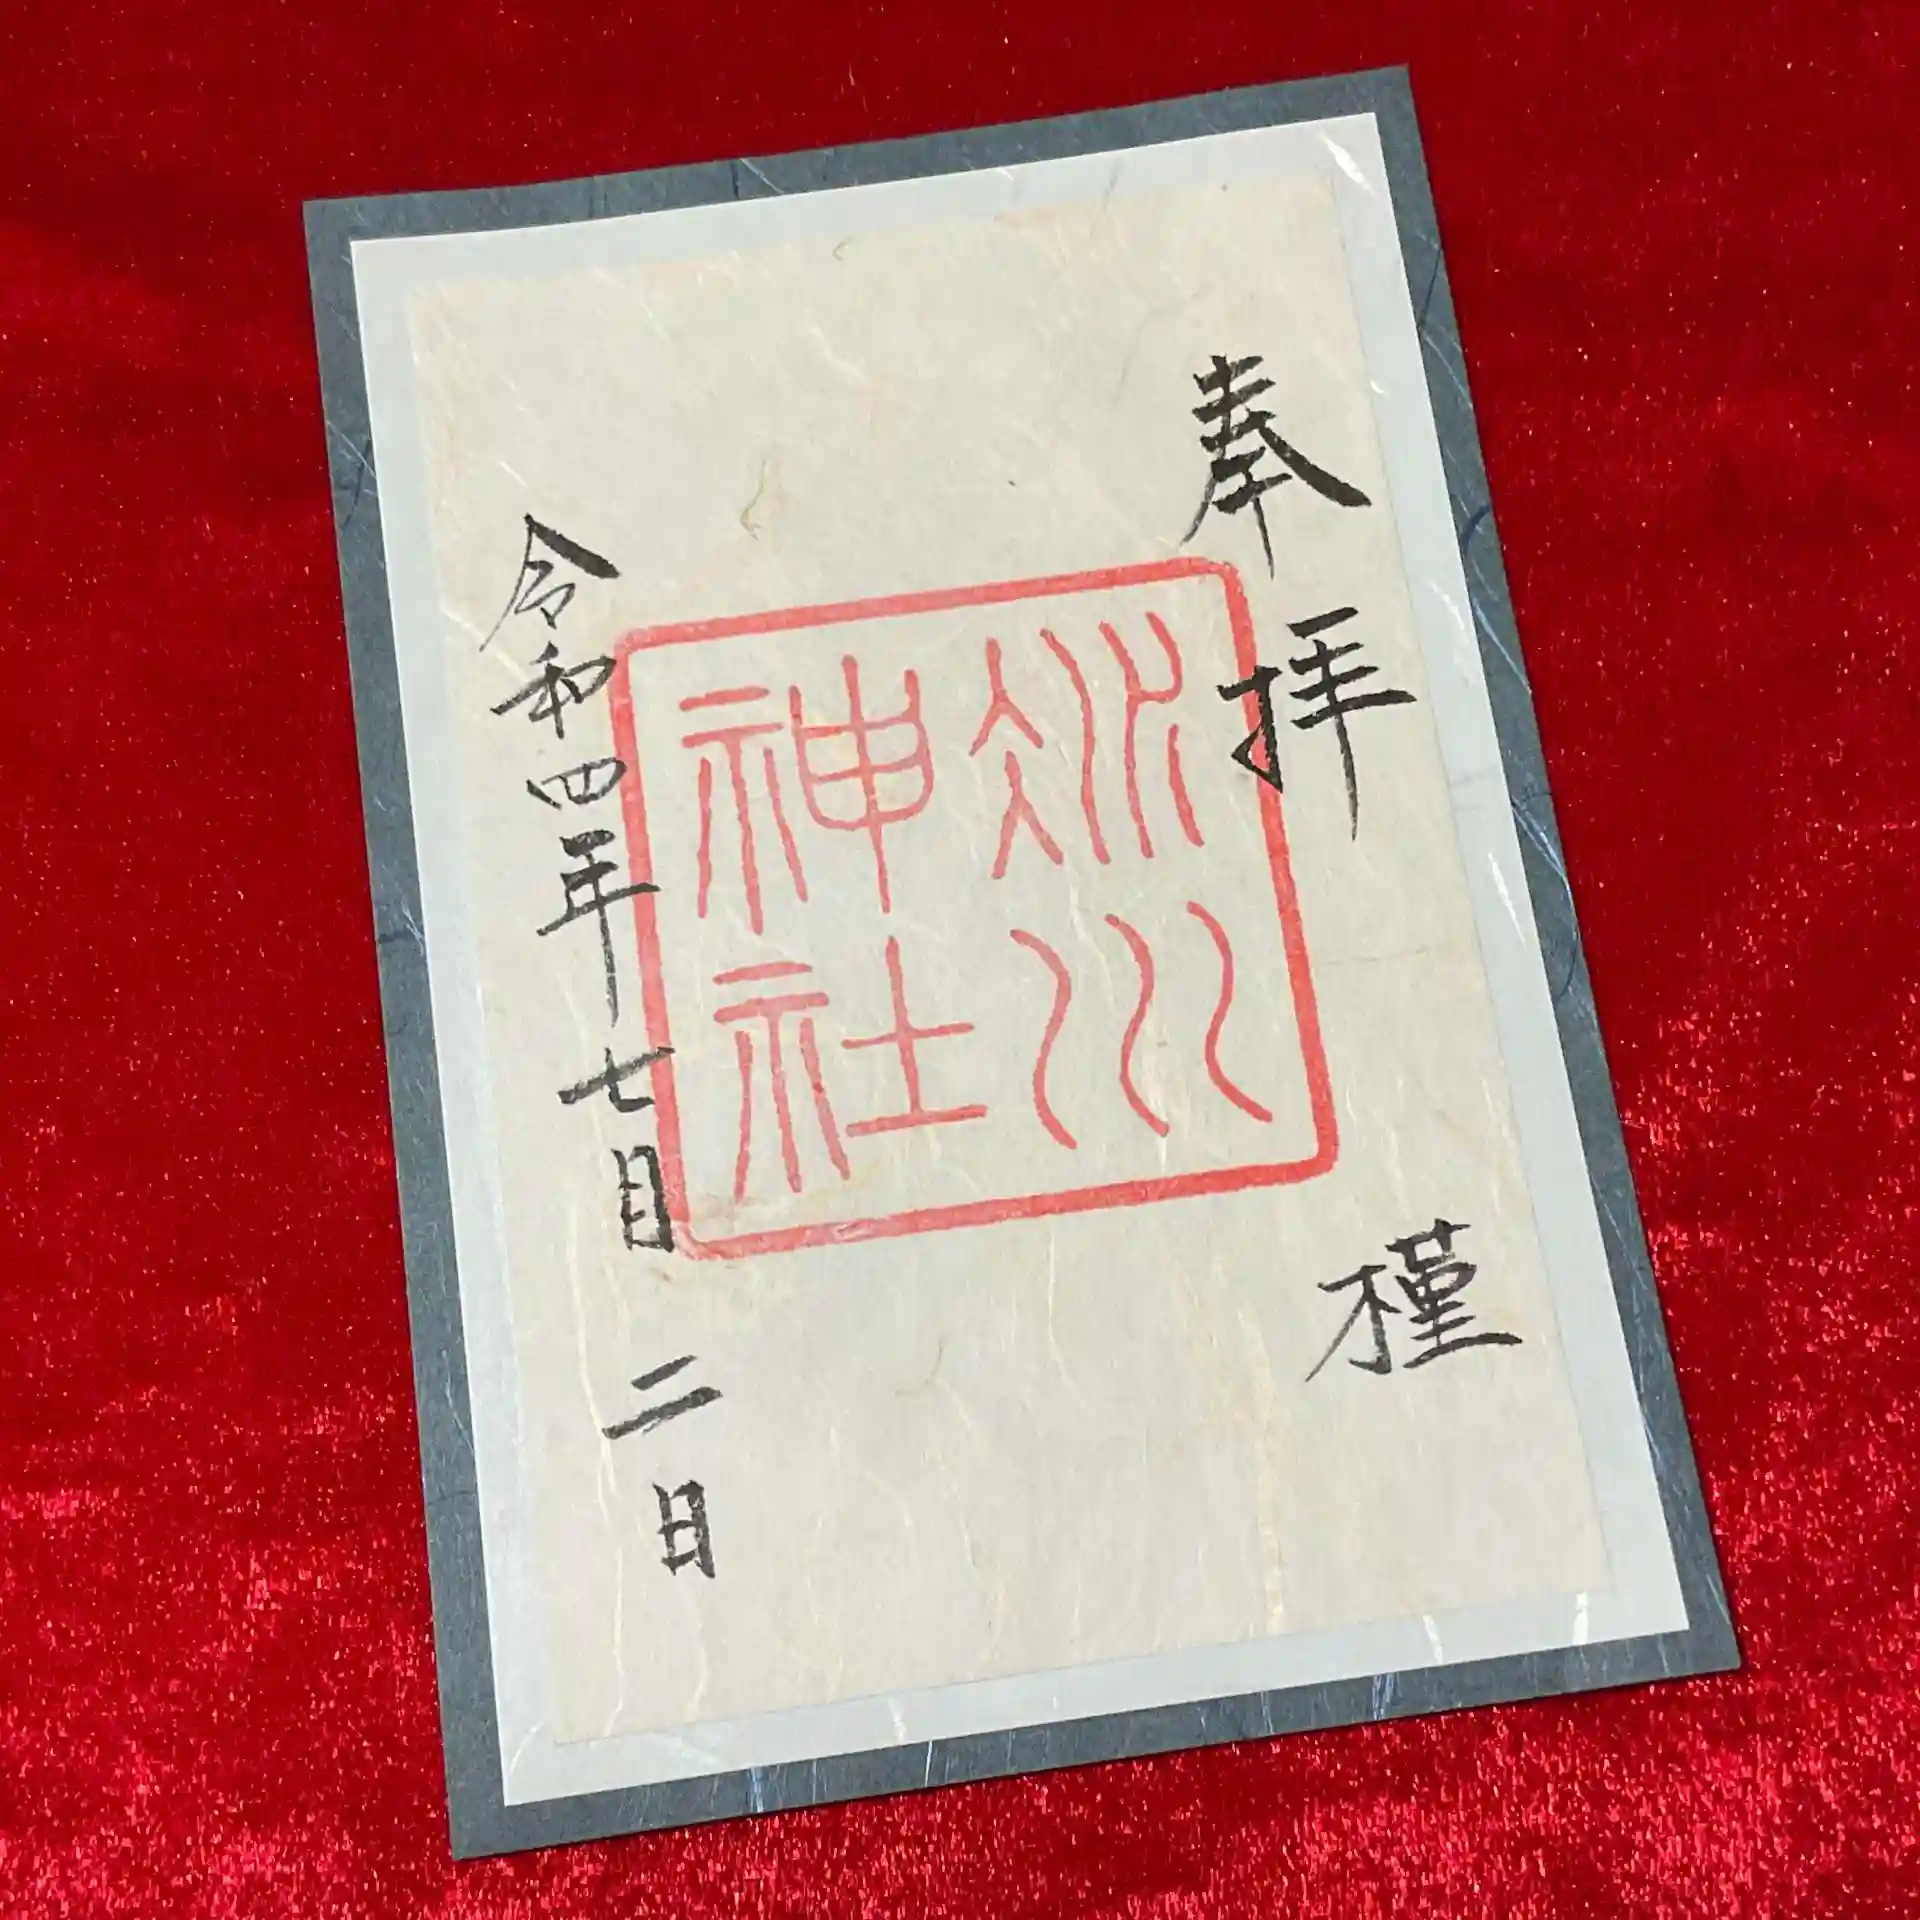 奉拝 槿
冰川
神社
令和四年七月二日